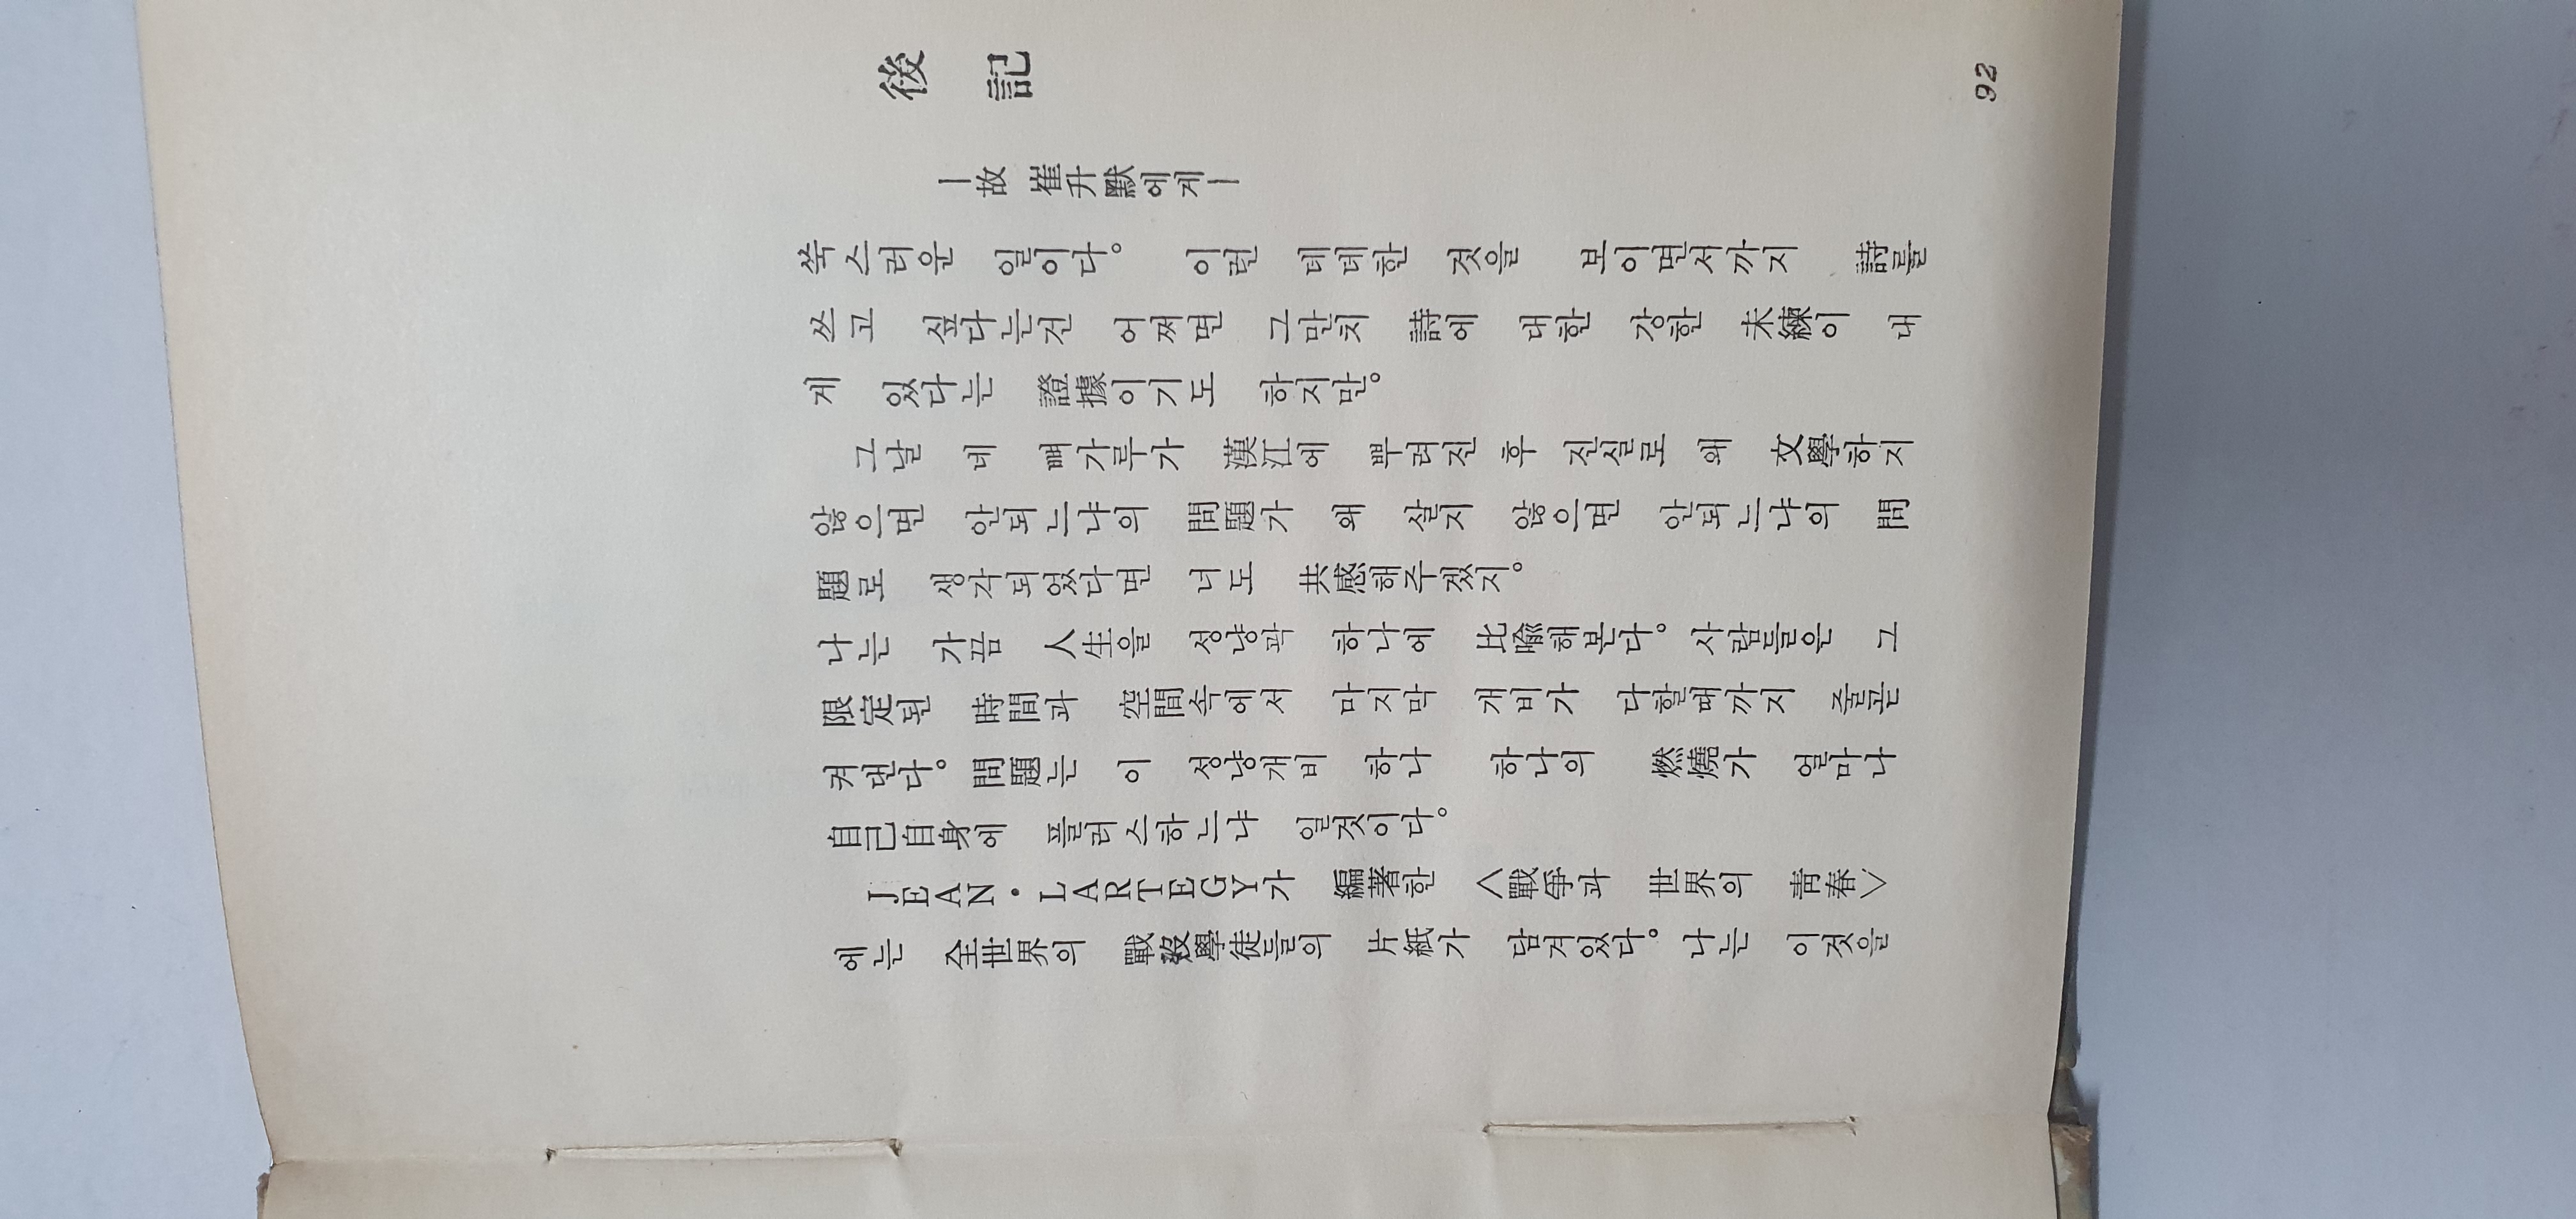 後記
―故 崔升默에게―
쑥스러운 일이다。 이런 데데한 것을 보이면서까지 詩를
쓰고 싶다는건 어쩌면 그만치 詩에 대한 강한 未練이 내
게 있다는 證據이기도 하지만。
그날 네 뼈가루가 漢江에 뿌려진 후 진실로 왜 文學하지
않으면 안되느냐의 問題가 왜 살지 않으면 안되느냐의 問
題로 생각되었다면 너도 共感해주겠지。
나는 가끔 人生을 성냥곽 하나에 比喩해본다。 사람들은 그
限定된 時間과 空間속에서 마지막 개비가 다할때까지 줄곧
켜댄다。 問題는 이 성냥개비 하나 하나의 燃燒가 얼마나
自己自身에 플러스하느냐 일것이다。
JEAN・LARTEGY가 編著한 <戰爭과 世界의 靑春>
에는 全世界의 戰歿學徒들의 片紙가 담겨있다。 나는 이것을
92